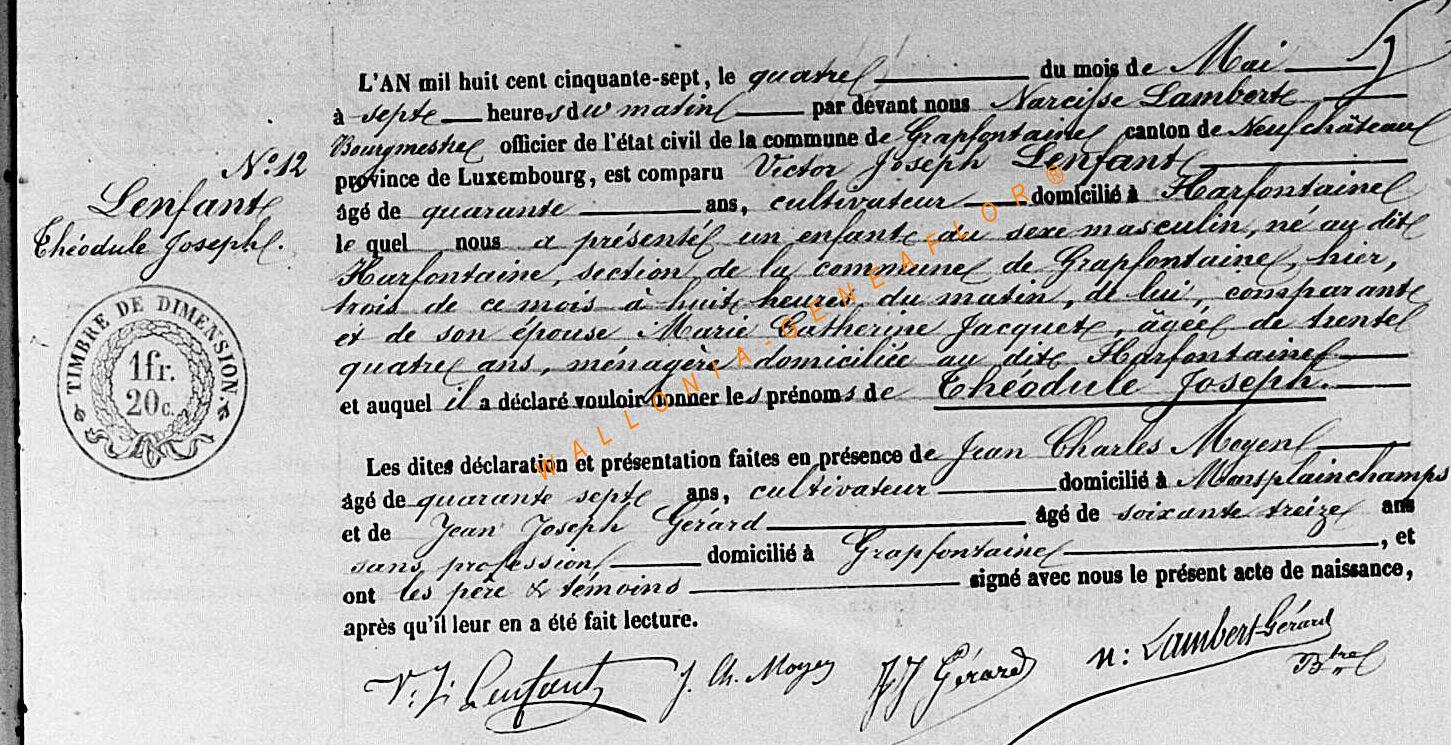 L'AN mil huit cent cinquante-sept, le quatre du mois de Mai
à sept heures du matin par devant nous Narcisse Lambert
Bourgmestre officier de l'état civil de la commune de Grapfontaine canton de Neufchâteau
province de Luxembourg, est comparu Victor Joseph Lenfant
âgé de quarante ans, cultivateur domicilié à Harfontaine
le quel nous a présenté un enfant du sexe masculin, né au dit
Harfontaine, section de la commune de Grapfontaine, hier,
trois de ce mois à huit heures du matin, de lui, comparant
et de son épouse Marie Catherine Jacquet, âgée de trente
quatre ans, ménagère domiciliée au dit Harfontaine
et auquel il a déclaré vouloir donner les prénoms de Théodule Joseph.
Les dites déclaration et présentation faites en présence de Jean Charles Moyen
âgé de quarante sept ans, cultivateur domicilié à Monsplainchamps
et de Jean Joseph Gérard âgé de soixante treize ans
sans profession domicilié à Grapfontaine, et
ont les père & témoins signé avec nous le présent acte de naissance,
après qu'il leur en a été fait lecture.
V. J. Lenfant J. Ch. Moyen JJ Gérard n: Lambert-Gérard
Btre
N° 12
Lenfant
Théodule Joseph.
TIMBRE DE DIMENSION.
1fr.
20c.
WALLONIA-GENEAFLOR®